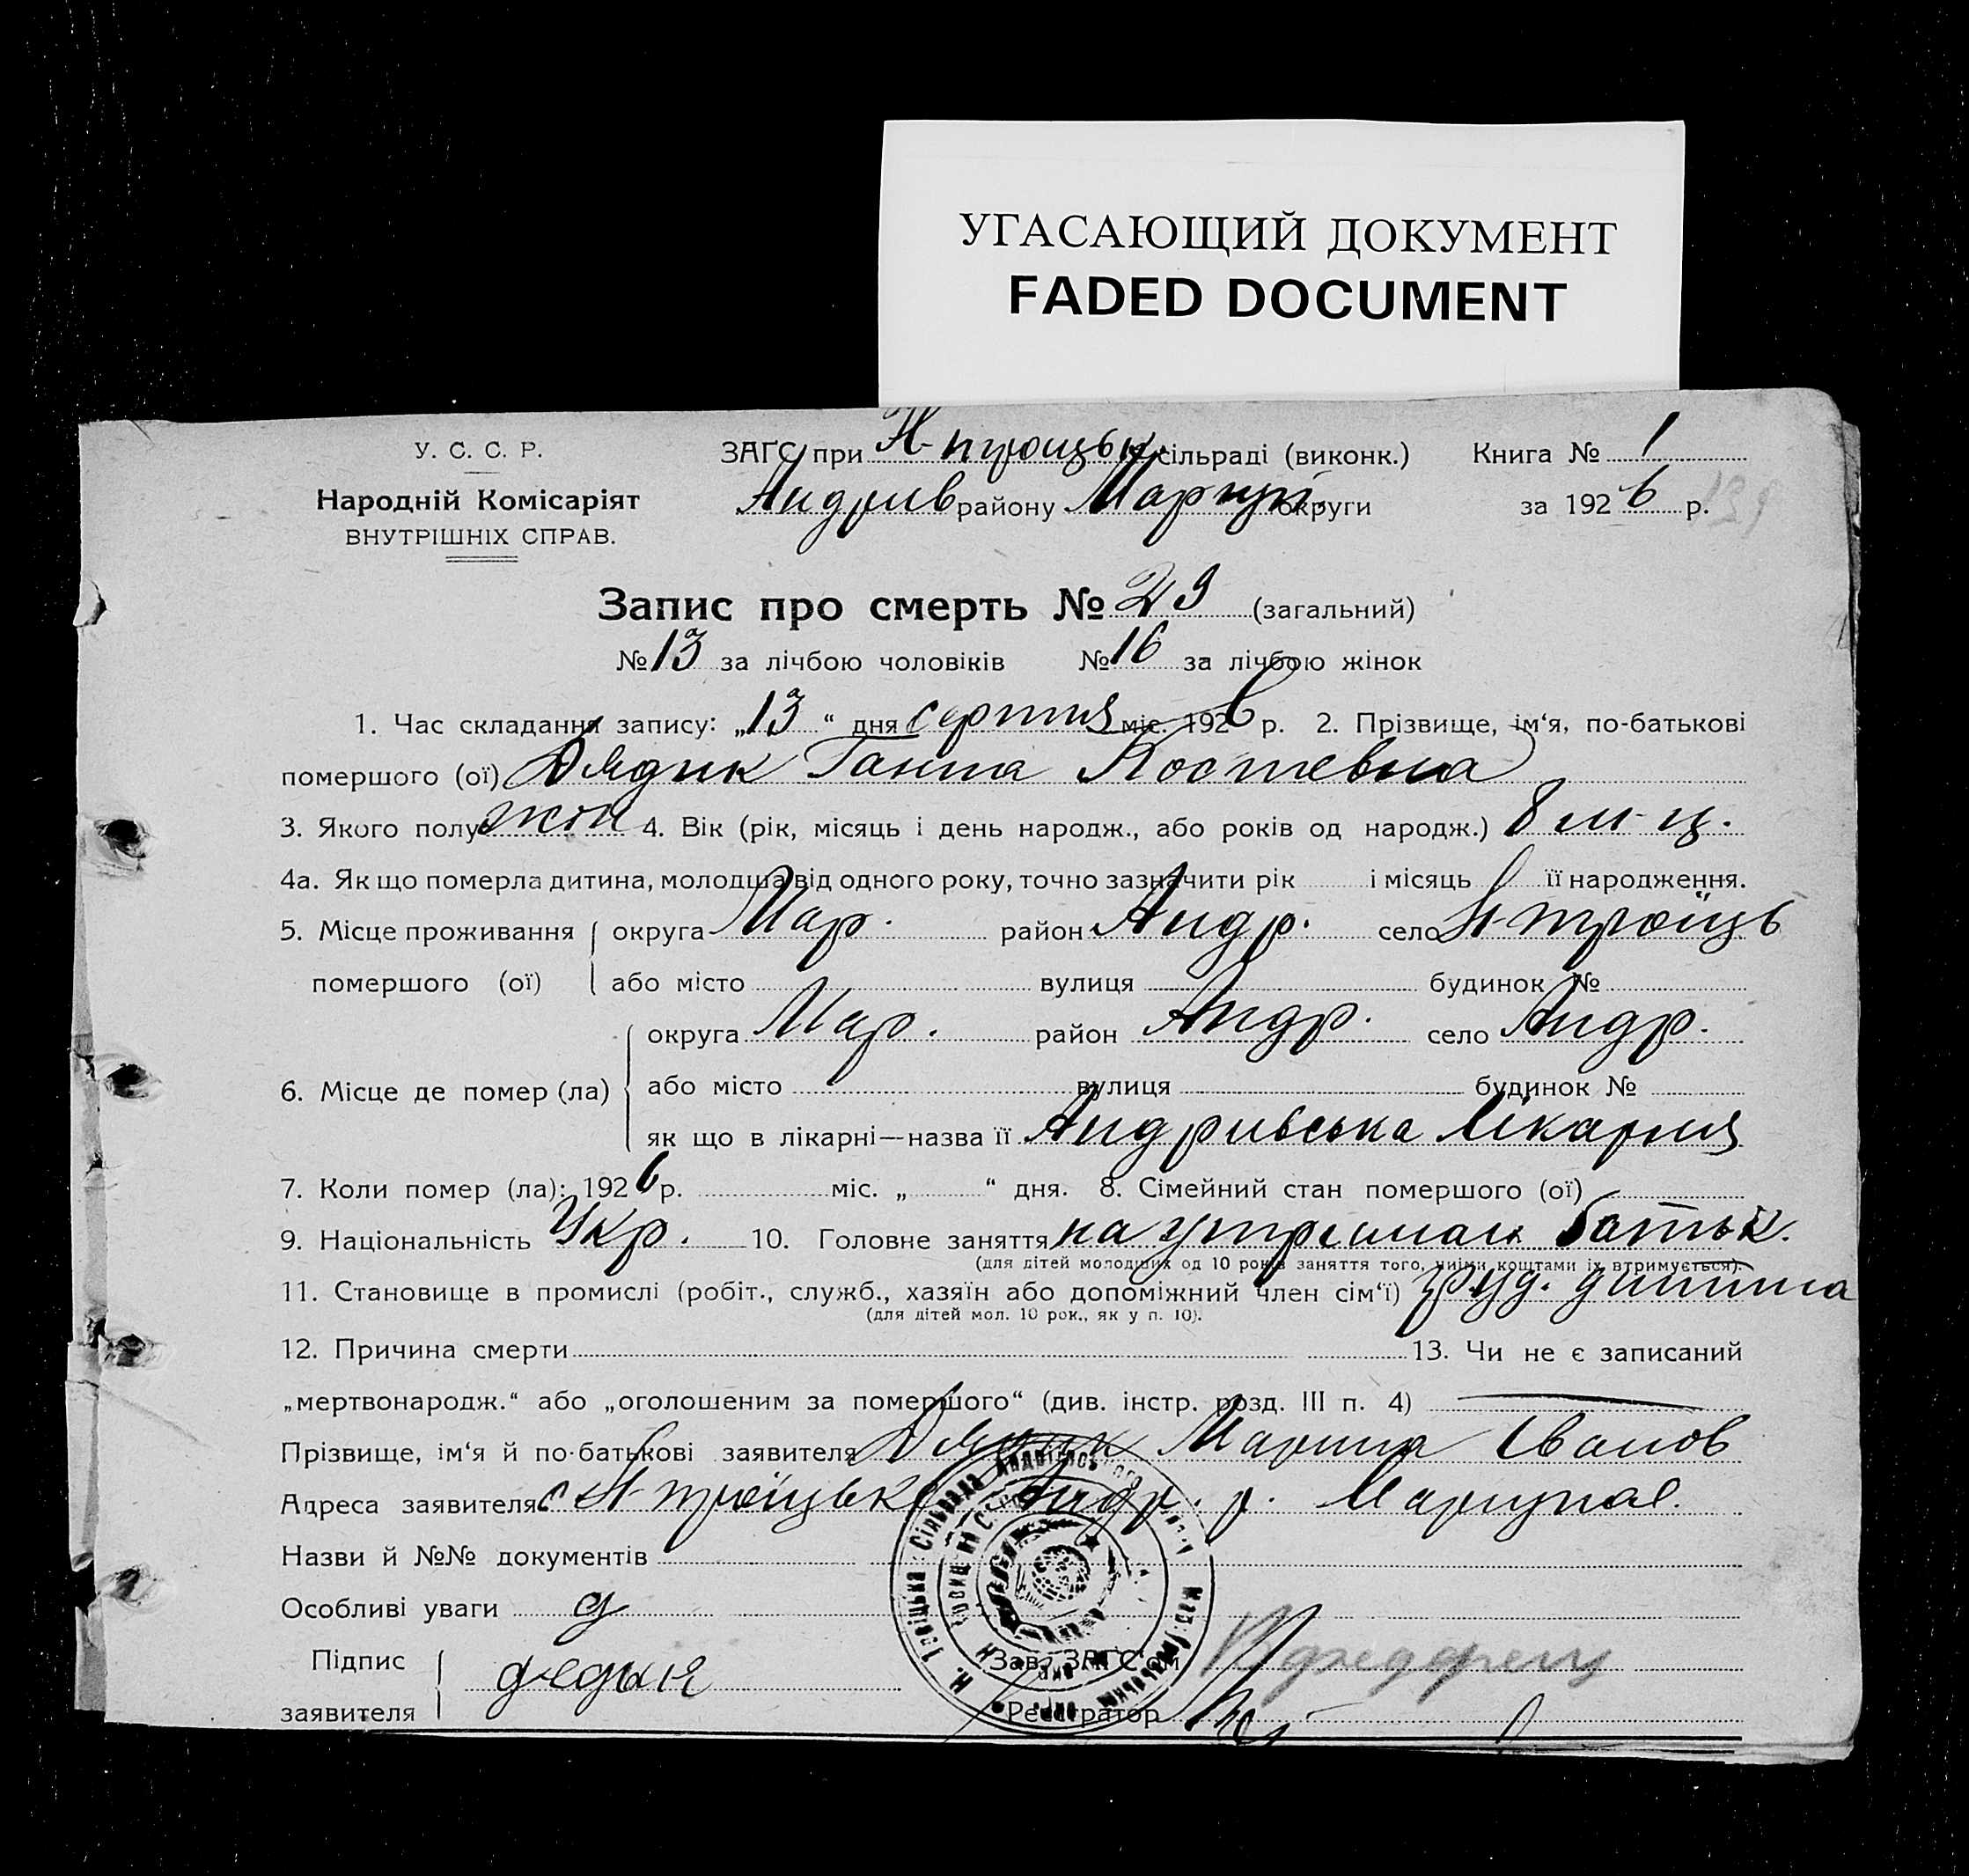 УГАСАЮЩИЙ ДОКУМЕНТ
FADED DOCUMENT
У. С. С. Р. ЗАГС при Н-троицьк. сільраді (виконк.) Книга № 1
Народній Комісаріят Андрив району Маріуп. округи за 1926 р. 139
ВНУТРІШНІХ СПРАВ.
Запис про смерть № 29 (загальний)
№ 13 за лічбою чоловіків № 16 за лічбою жінок
1. Час складання запису: „13“ дня серпня міс. 1926 р. 2. Прізвище, ім‘я, по-батькові
померлого (ої) Дядик Ганна Костевна
3. Якого полу жін 4. Вік (рік, місяць і день народж., або років од народж.) 8 м-ц.
4а. Як що померла дитина, молодша від одного року, точно зазначити рік і місяць її народження.
5. Місце проживання округа Мар. район Андр. село Н-троїць
померлого (ої) або місто вулиця будинок №
округа Мар. район Андр. село Андр.
6. Місце де помер (ла) або місто вулиця будинок №
як що в лікарні—назва її Андривська лікарня
7. Коли помер (ла): 1926 р. міс. „ “ дня. 8. Сімейний стан померлого (ої)
9. Національність Укр. 10. Головне заняття на утриман батьк.
(для дітей молодших од 10 років заняття того, чиїми коштами їх втримується).
11. Становище в промислі (робіт., служб., хазяїн або допоміжний член сім‘ї) груд. дитина
(для дітей мол. 10 рок., як у п. 10).
12. Причина смерти 13. Чи не є записаний
„мертвонародж.“ або „оголошеним за померлого“ (див. інстр. розд. III п. 4)
Прізвище, ім‘я й по-батькові заявителя Дядик Марина Іванов
Адреса заявителя с Н-троїцьк Андр. р. Маріупол.
Назви й №№ документів
Особливі уваги
Підпис
заявителя
Зав. ЗАГС‘ом
Реєстратор